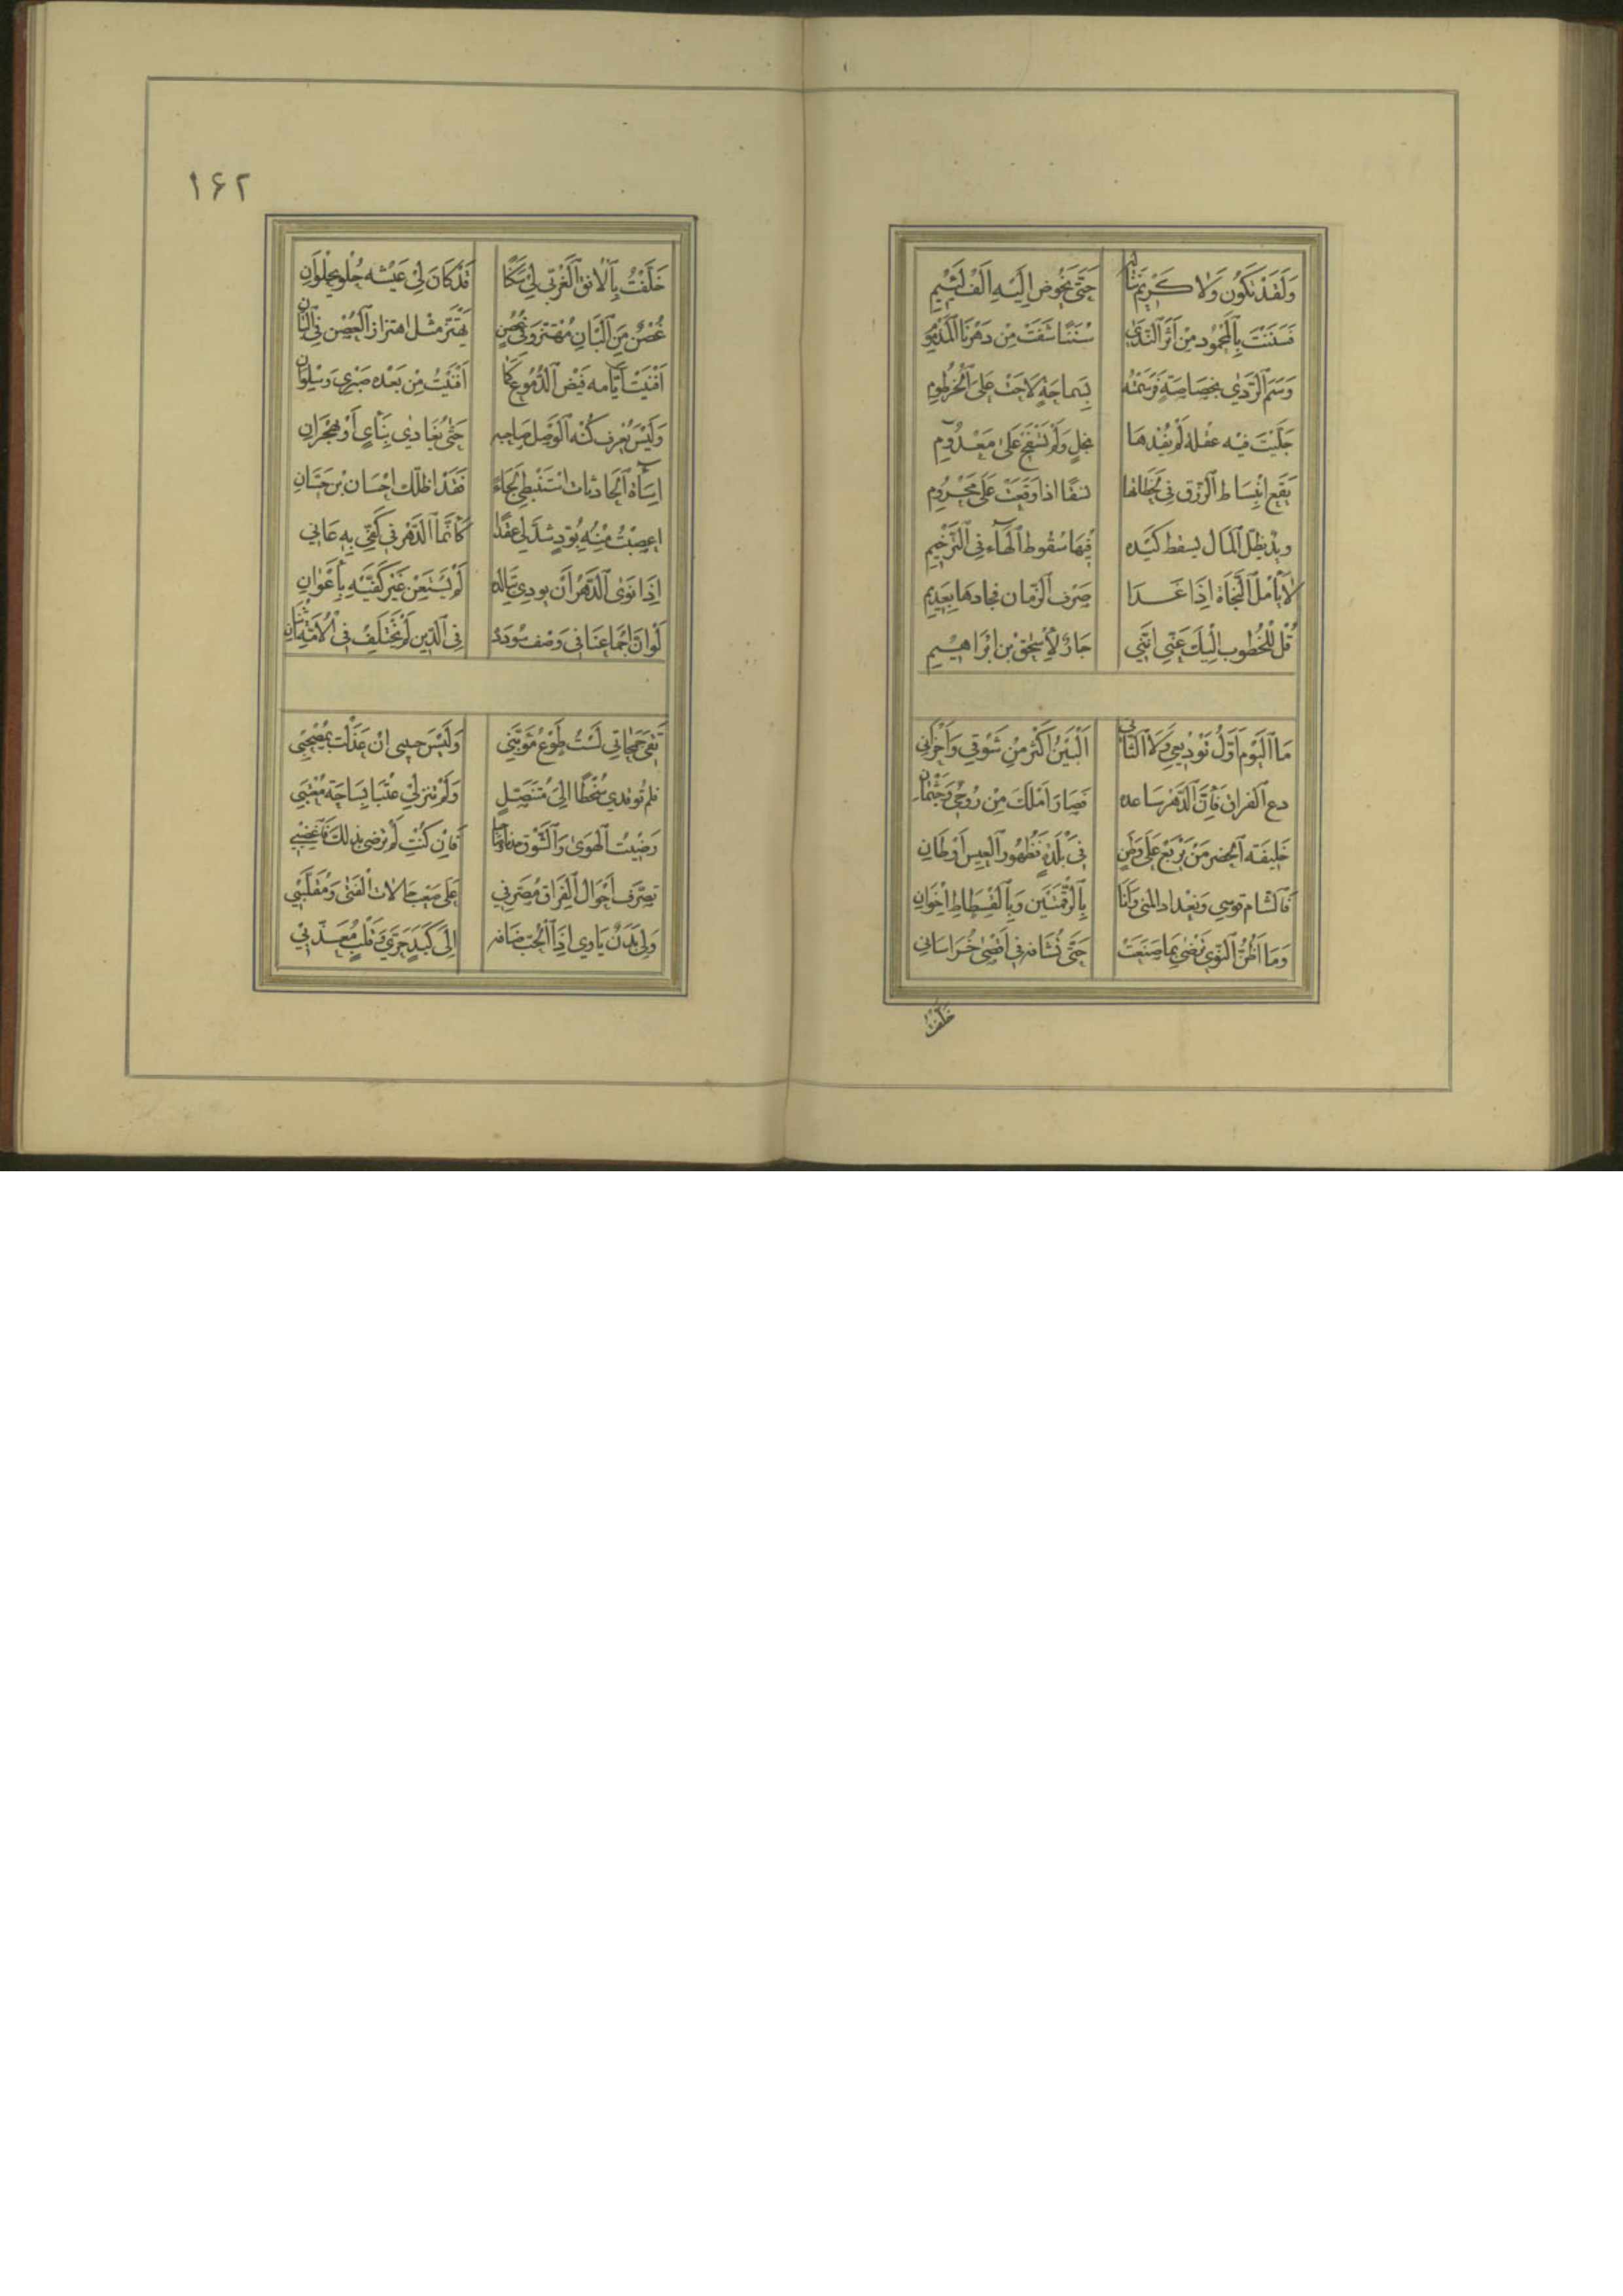 وَلَقَدْ تَكُونُ وَلَا كَرِيْمَ نَنَالُهُ حَتّٰى يَخُوضَ اِلَيْهِ اَلْفَ لَئِيْمِ
فَسَنَنْتَ بِالْمَحْمُودِ مِنْ اَثَرِ النَّدٰى سُنَنًا شَفَتْ مِنْ دَهْرِنَا الْمَذْمُومِ
وَسَمَ الرَّدٰى بِخَصَاصَةٍ فَوَسَمْتُهُ بِسَمَاحَةٍ لَاحَتْ عَلَى الْخُرْطُومِ
جَلَّيْتَ فِيْهِ عقله لَمْ يُقْذِهَا بخلٍ وَلَمْ تَسْفَحْ عَلٰى مَعْدُومِ
يَقَعُ انْبِسَاطُ الرِّزْقِ فِي لَحَظَاتِهَا نسقًا اذا وَقَعَتْ عَلٰى مَحْرُومِ
ويد يظلّ المال يسقط كيده فِيْهَا سُقُوطَ الْهَاءِ فِي التَّرْخِيْمِ
لَا يَأْمَلُ النَّجَاةَ اِذَا عَدَا صَرْفُ الزَّمَانِ فجادها بعديم
قُلْ لِلْخُطُوبِ اِلَيْكِ عَنِّي اِنَّنِي جَارٌ لِاِسْحٰقَ بْنِ اِبْرَاهِيْمِ
مَا الْيَوْمَ اَوَّلُ تَوْدِيعِي وَلَا الثَّانِي اَلْبَيْنُ اَكْثَرُ مِنْ شَوْقِي وَاَحْزَانِي
دعِ الفراق فَاِنَّ الدَّهْرَ ساعده فَصَارَ اَمْلَكَ مِنْ رُوحِي وَجُثْمَانِي
خَلِيفَةُ الْخِضْرِ مَنْ يَرْبَعْ عَلٰى وَطَنٍ فِي بَلْدَةٍ فَظُهُورُ الْعِيْسِ اَوْطَانِي
فَالشَّامُ قومي وَبَغْدَادُ المنى وَاَنَا بِالرَّقَّتَيْنِ وَبِالْفُسْطَاطِ اِخْوَانِي
وَمَا اَظُنُّ النَّوٰى تَرْضٰى بِمَا صَنَعَتْ حَتّٰى تُشَافِهَ فِي اَقْصٰى خُرَاسَانِ
خَلَّفْتُ
١۶٢
خَلَّفْتُ بِالْاُفُقِ الْغَرْبِيِّ لِي سَكَنًا قَدْ كَانَ لِي عَيْشُهُ حُلْوًا بِحُلْوَانِ
غُصْنٌ مِنَ الْبَانِ مُهْتَزٌّ وَفِي غُصْنٍ يَهْتَزُّ مِثْلَ اهْتِزَازِ الْغُصْنِ فِي الْبَانِ
اَفْنَيْتُ اَيَّامَهُ فَيْضَ الدُّمُوعِ كَمَا اَفْنَيْتُ مِنْ بَعْدِهِ صَبْرِي وَسُلْوَانِي
وَلَيْسَ يَعْرِفُ كُنْهَ الْوَصْلِ صَاحِبُهُ حَتّٰى يُغَادٰى بِنَأْيٍ اَوْ بِهِجْرَانِ
اِسَاءَةَ الْحَادِثَاتِ اسْتَنْبِطِي لِجَاءً فَقَدْ اَظَلَّكِ اِحْسَانُ بْنِ حَسَّانِ
اعصبت مِنْهُ بود شدّ لي عقدًا كَاَنَّمَا الدَّهْرُ فِي كَفِّي بِهِ عَانِي
اِذَا نَوَى الدَّهْرُ اَنْ يُودِي بِتَالِدِهِ لَمْ يَسْتَعِنْ غَيْرَ كَفَّيْهِ بِاَعْوَانِ
لَوْ اَنَّ اِجْمَاعَنَا فِي وَصْفِ سُودَدِهِ فِي الدِّيْنِ لَمْ يَخْتَلِفْ فِي الْاُمَّةِ اثْنَانِ
تَقِي جَمَحَاتِي لَسْتُ طَوْعَ مُؤَنِّبِي وَلَيْسَ جنبي اِنْ عَذَلْتِ بِمُصْحِبِي
فلم تُوفِدِي سُخْطًا اِلَى مُتَنَصِّلٍ وَلَمْ تُنْزِلِي عُتْبًا بِسَاحَةِ مُعْتِبِي
رَضِيْتُ الْهَوٰى وَالشَّوْقَ خدنًا وَصَاحِبًا فَاِنْ كُنْتِ لَمْ تَرْضَيْ بِذٰلِكَ فَاغْضَبِي
تصرّف اَحْوَالُ الْفِرَاقِ مُصَرِّفِي عَلٰى صَعْبِ حَالَاتِ الْفَتٰى وَمُقَلِّبِي
وَلِي بَدَنٌ يَأْوِي اِذَا الْحُبُّ ضَافَهُ اِلٰى كَبِدٍ حَرّٰى وَقَلْبٍ مُعَذَّبِي